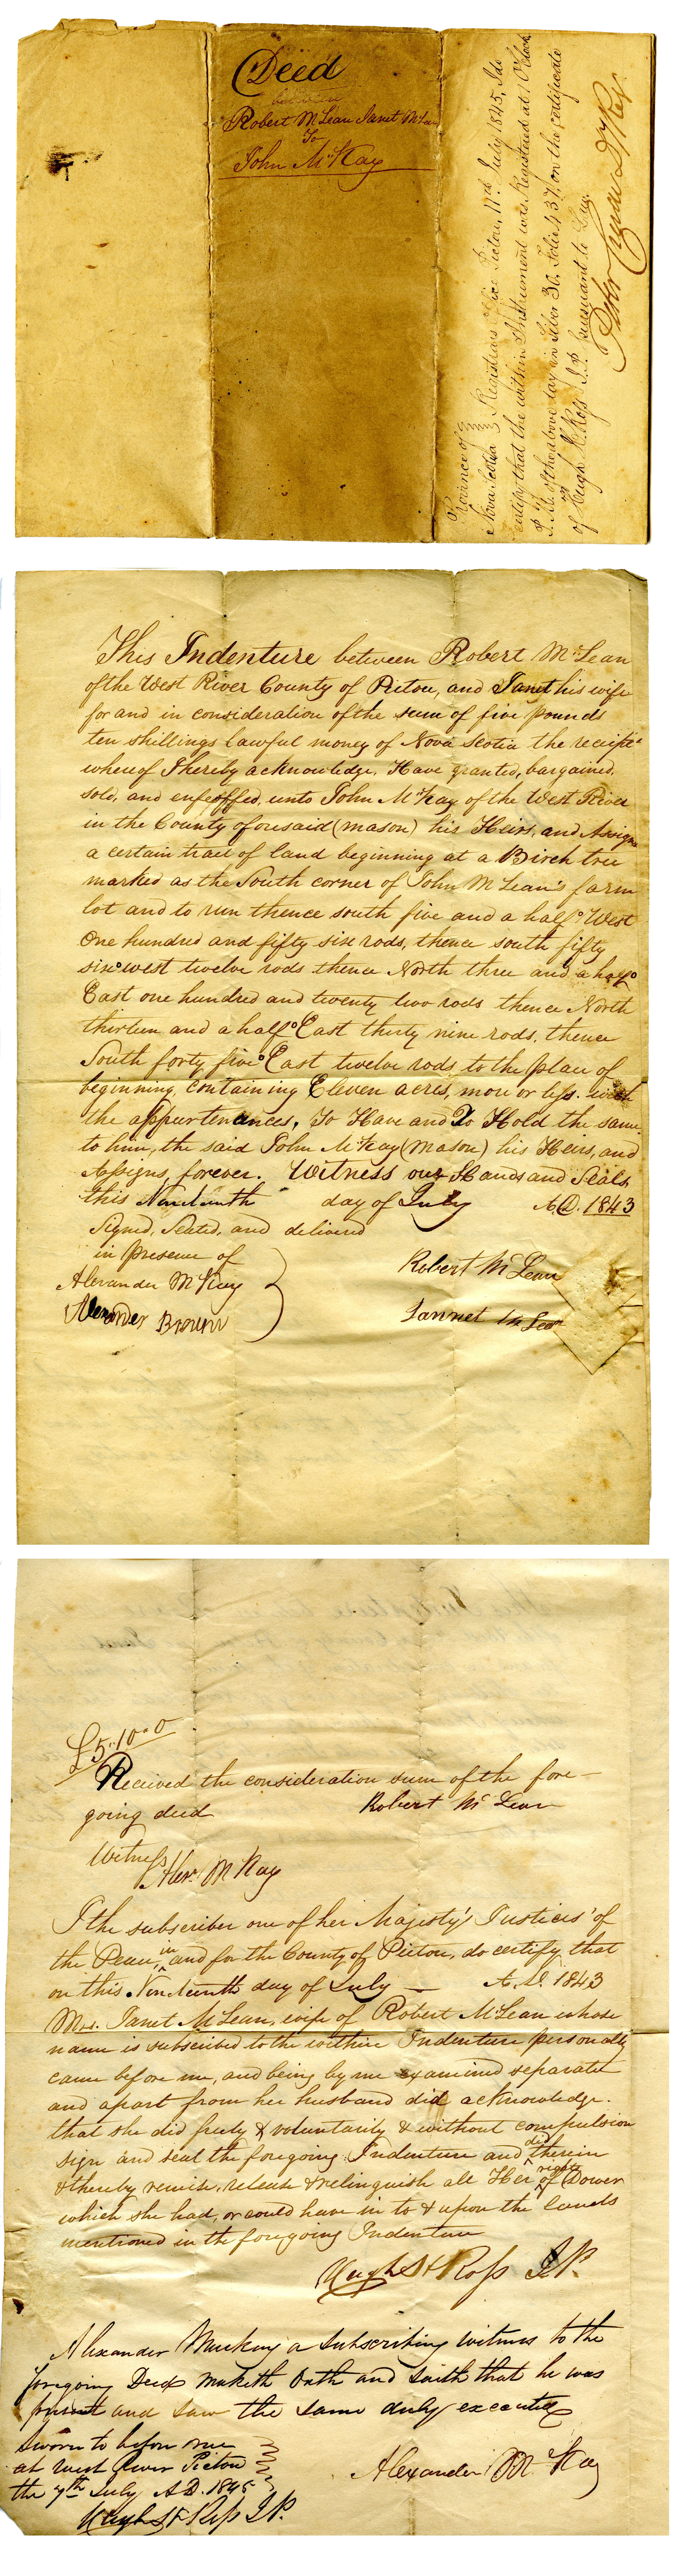 Deed
between
Robert McLean Janet McLean
To
John McKay
Province of
Nova Scotia } Registrars Office Pictou, 17th July 1845, I do
certify that the within Instrument was Registered at 1 OClock
P.M. of the above day in Liber 30. Folio 437. on the certificate
of Hugh H. Ross J.P. pursuant to Law.
This Indenture between Robert McLean
of the West River County of Pictou, and Janet his wife
for and in consideration of the sum of five pounds
ten shillings lawful money of Nova Scotia the receipt
whereof I hereby acknowledge, Have granted, bargained,
sold, and enfeoffed, unto John McKay of the West River
in the County aforesaid (mason) his Heirs, and Assigns
a certain tract of land beginning at a Birch tree
marked as the South corner of John McLean's farm
lot and to run thence south five and a half° West
One hundred and fifty six rods, thence south fifty
six° west twelve rods thence North three and a half°
East one hundred and twenty two rods thence North
thirteen and a half° East thirty nine rods, thence
South forty five° East twelve rods, to the place of
beginning, containing Eleven acres, more or less. with
the appurtenances, To Have and To Hold the same
to him, the said John McKay (mason) his Heirs, and
Assigns, forever. Witness our Hands and Seals,
this Nineteenth day of July A.D. 1843
Signed, Sealed, and delivered
in presence of
Alexander McKay
Alexander Brown
Robert McLean
Jannet McLean
£5..10..0
Received the consideration sum of the fore-
going deed Robert McLean
Witness
Alexr. McKay
I the subscriber one of her Majesty's Justices' of
the Peace in and for the County of Pictou, do certify that
on this Nineteenth day of July A.D. 1843
Mrs. Janet McLean, wife of Robert McLean whose
name is subscribed to the within Indenture personally
came before me, and being by me examined separate
and apart from her husband did acknowledge.
that she did freely & voluntarily & without compulsion
sign and seal the foregoing Indenture and did therein
& thereby remise, release & relinquish all Her right of Dower
which she had, or could have in to & upon the lands
mentioned in the foregoing Indenture
Hugh H Ross J.P.
Alexander Mackay a Subscribing witness to the
foregoing Deed maketh Oath and saith that he was
present and saw the same duly executed
Sworn to before me
at West River Pictou
the 7th July A.D. 1845
Alexander McKay
Hugh H Ross J.P.